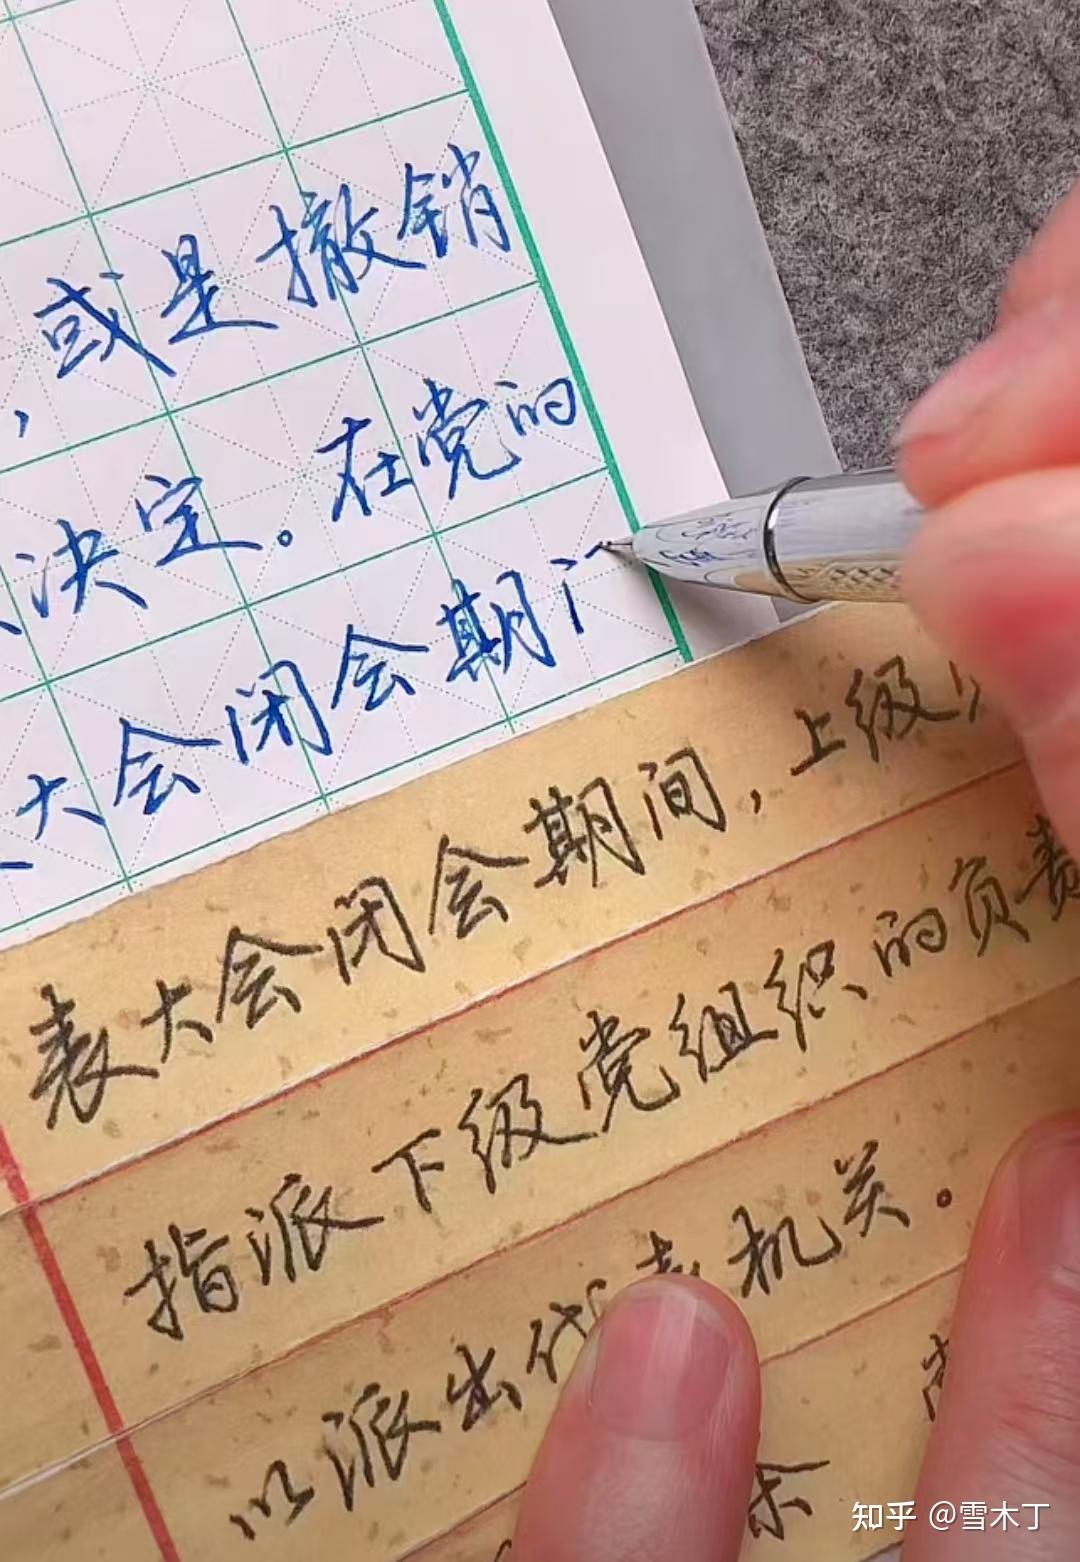 ，或是撤销
决定。在党的
大会闭会期
表大会闭会期间，上级
指派下级党组织的负责
以派出代表机关。
知乎 @雪木丁